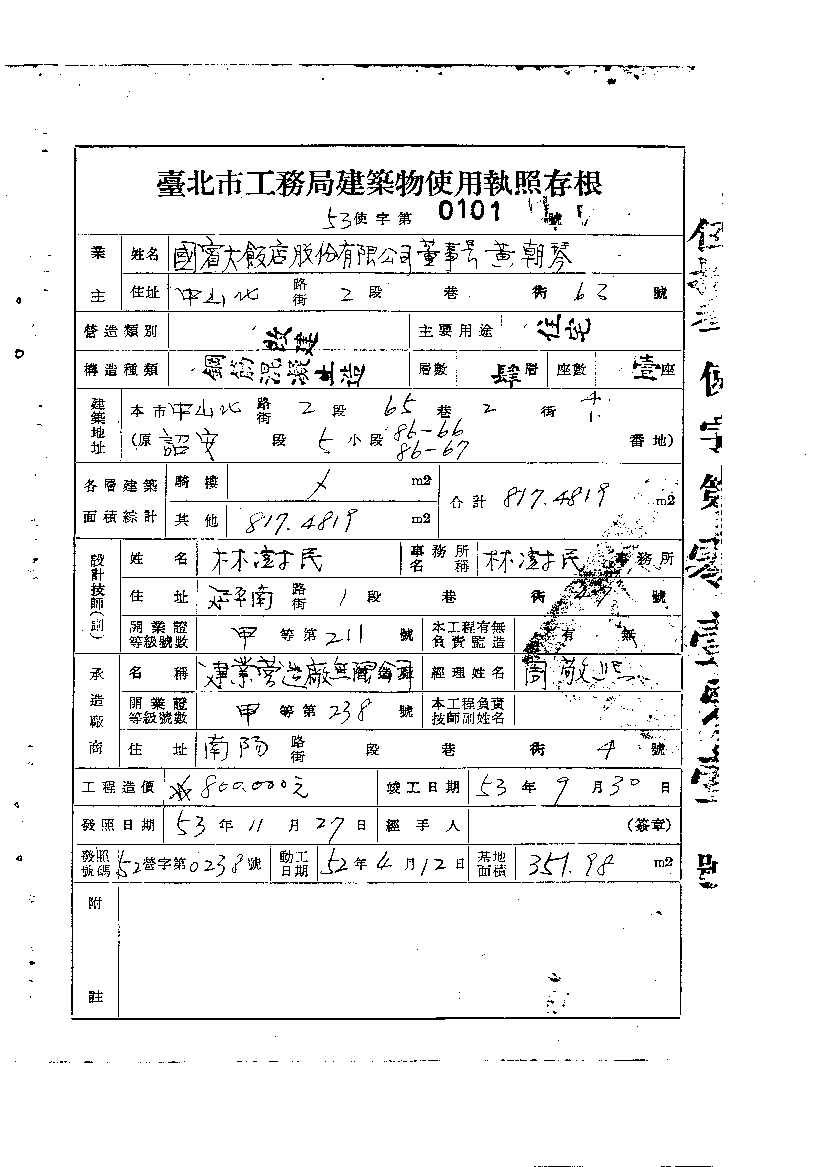 臺北市工務局建築物使用執照存根
53使字第 0101 號
業主 姓名 國賓大飯店股份有限公司董事長黃朝琴
住址 中山北 路街 2 段 巷 街 63 號
營造類別 改建 主要用途 住宅
構造種類 鋼筋混凝土造 層數 肆層 座數 壹座
建築地址 本市中山北 路街 2 段 65 巷 2 街
(原 詔安 段 5 小段 86-66 86-67 番地)
各層建築面積綜計 騎樓 m2 合計 817.4819 m2
其他 817.4819 m2
設計技師(副) 姓名 林澍民 事務所名稱 林澍民 事務所
住址 延平南 路街 1 段 巷 街 號
開業證等級號數 甲 等第 211 號 本工程有無負責監造 有 無
承造廠商 名稱 建業營造廠無限公司 經理姓名 周敬熙
開業證等級號數 甲 等第 238 號 本工程負責技師副姓名
住址 南陽 路街 段 巷 街 4 號
工程造價 800,000元 竣工日期 53 年 9 月 30 日
發照日期 53 年 11 月 27 日 經手人 (簽章)
發照號碼 52營字第0238號 動工日期 52 年 4 月 12 日 基地面積 351.98 m2
附註
使字第零壹